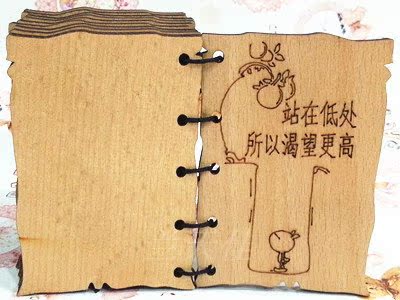 站在低处
所以渴望更高